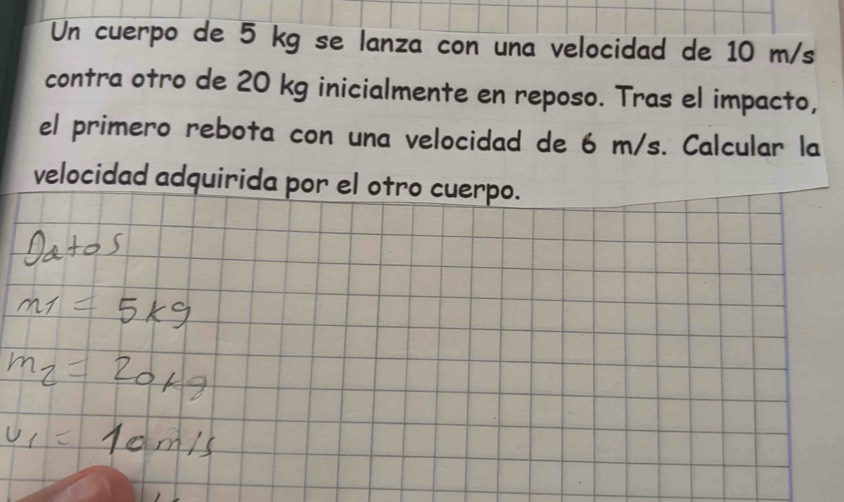 Un cuerpo de 5 kg se lanza con una velocidad de 10 m/s
contra otro de 20 kg inicialmente en reposo. Tras el impacto,
el primero rebota con una velocidad de 6 m/s. Calcular la
velocidad adquirida por el otro cuerpo.
Datos
m1 = 5kg
m2 = 20kg
v1 = 10m/s